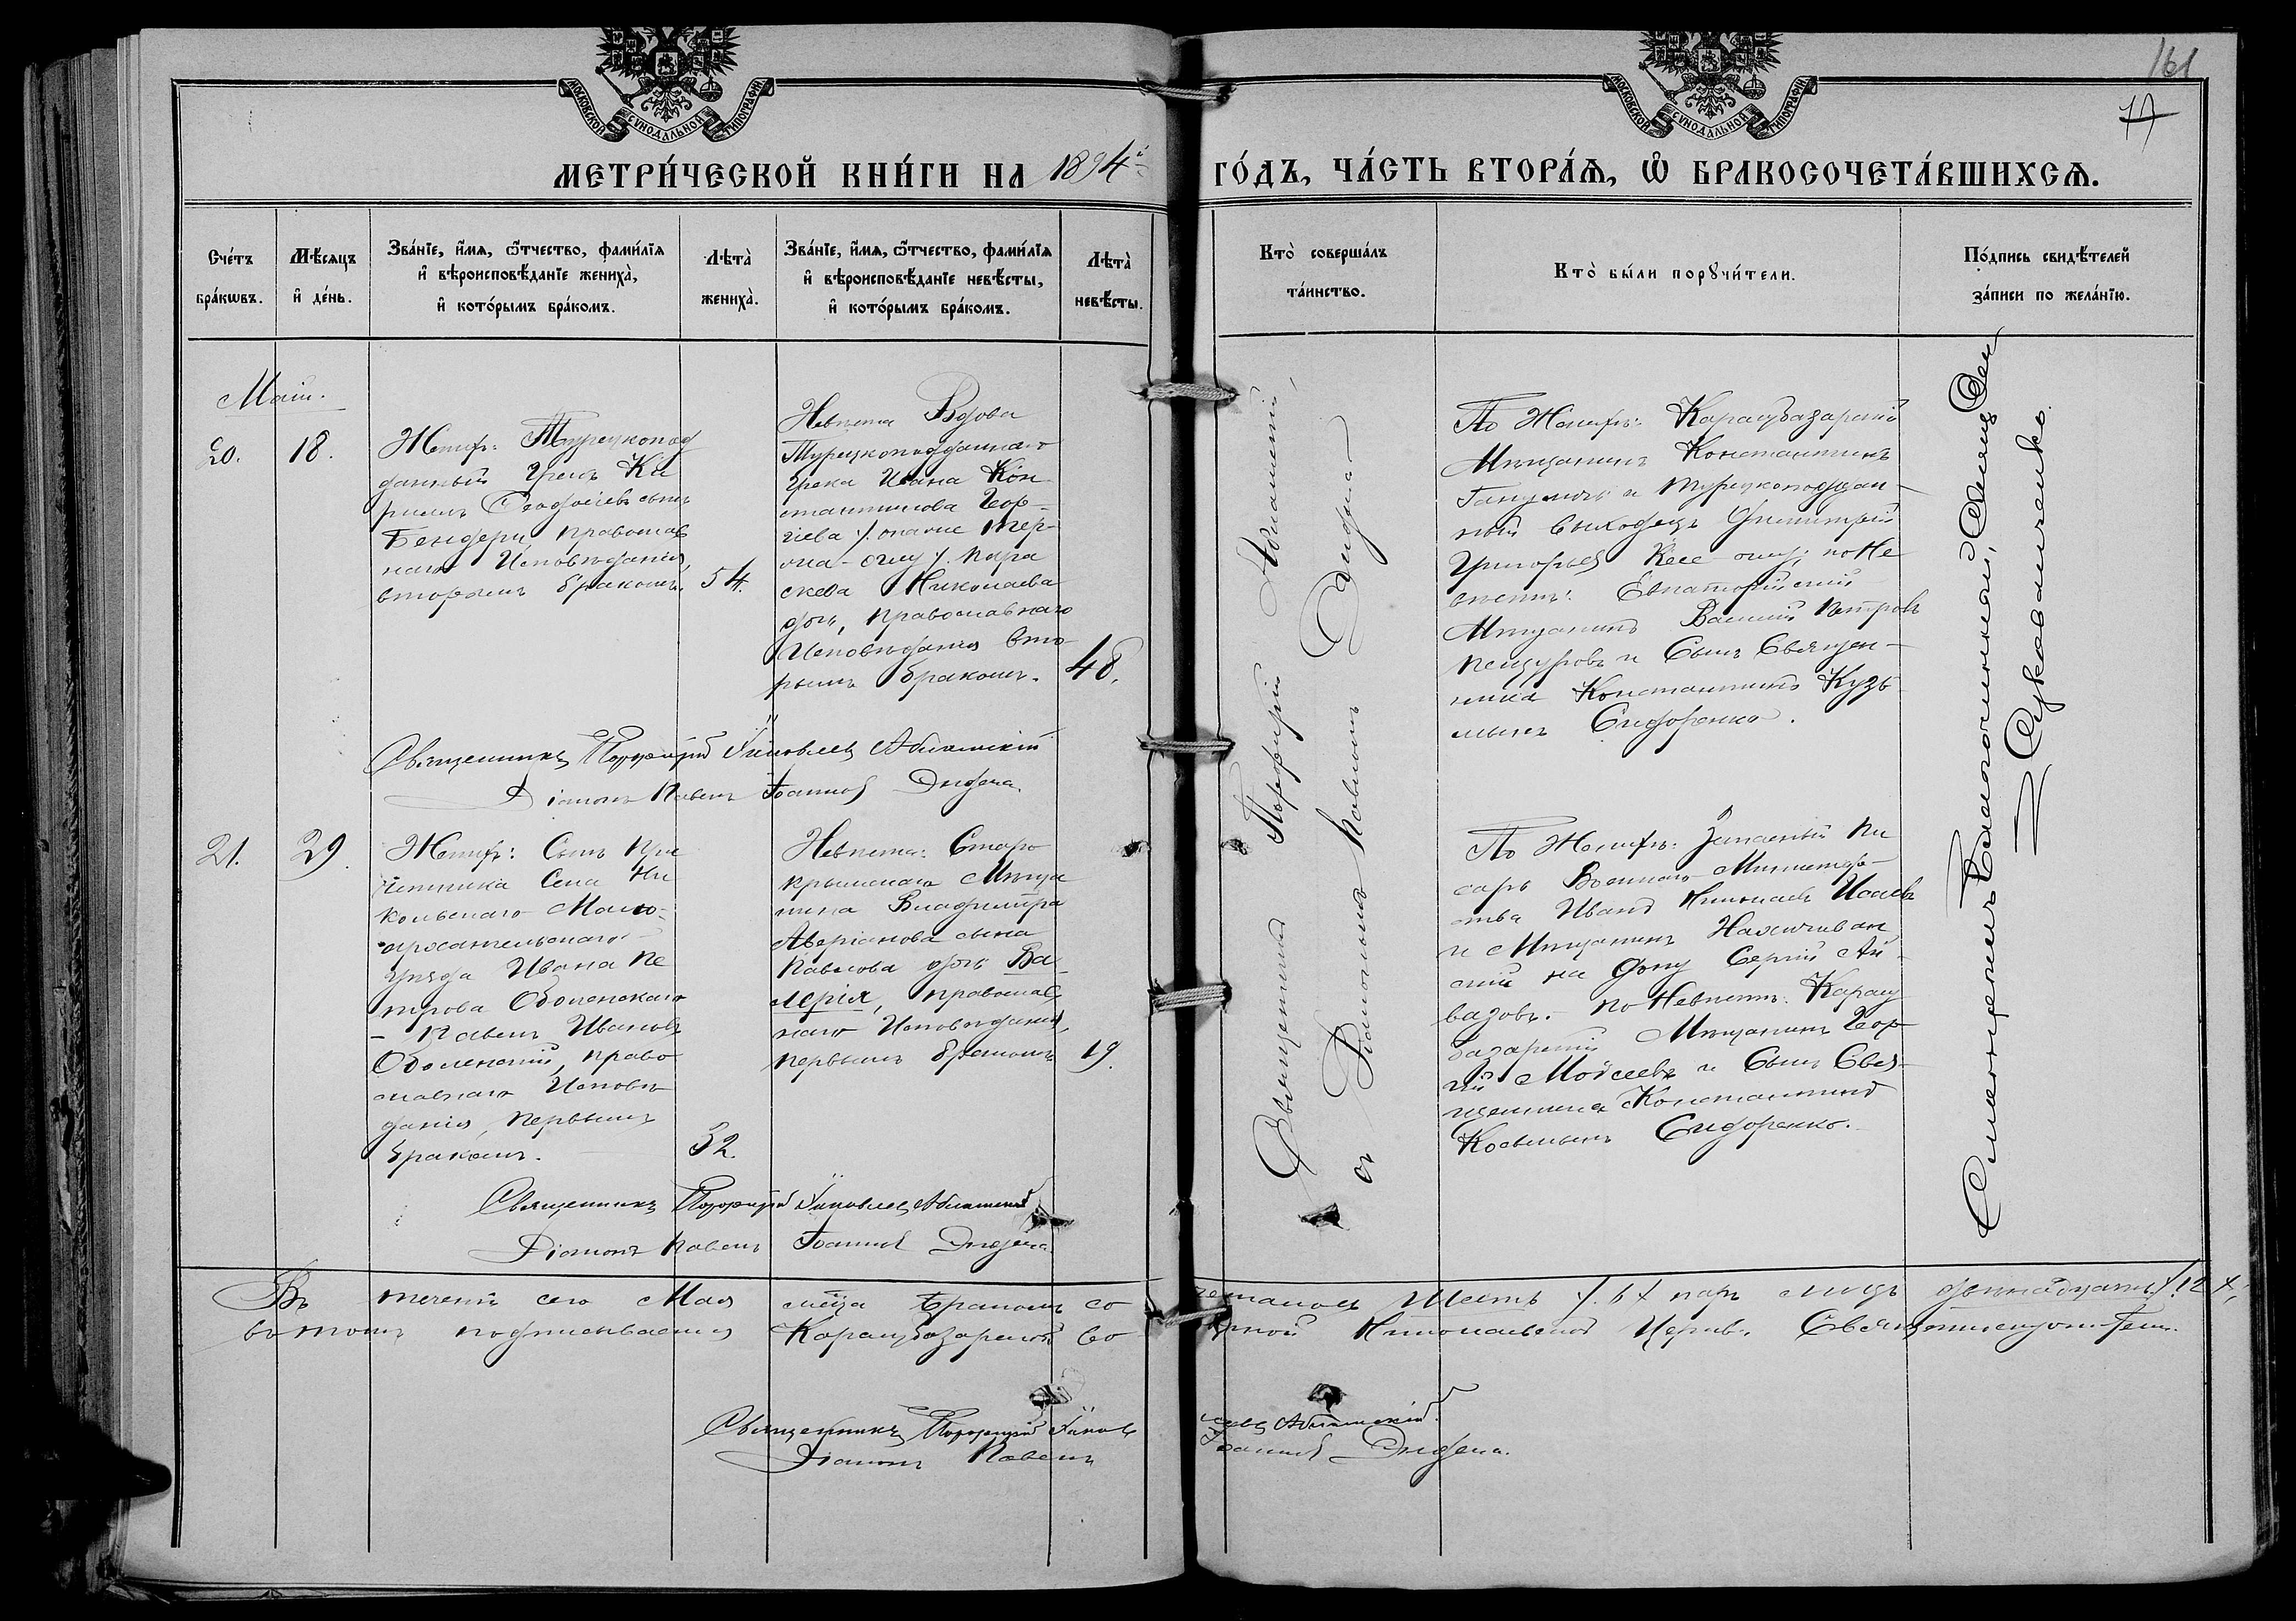 161
17
МОСКОВСКОЙ СѴНОДАЛЬНОЙ ТИПОГРАФІИ
МОСКОВСКОЙ СѴНОДАЛЬНОЙ ТИПОГРАФІИ
МЕТРИ́ЧЕСКОЙ КНИ́ГИ НА 1894й
ГО́ДЪ, ЧА́СТЬ ВТОРА́Ѧ, Ѡ҆ БРАКОСОЧЕТА́ВШИХСѦ.
Сче́тъ
бра́кѡвъ.
Мѣ́сѧцъ
и҆ де́нь.
Зва́нїе, и҆́мѧ, ѻ҆́тчество, фами́лїѧ
и҆ вѣроисповѣ́данїе жениха̀,
и҆ кото́рымъ бра́комъ.
Лѣта̀
жениха̀.
Зва́нїе, и҆́мѧ, ѻ҆́тчество, фами́лїѧ
и҆ вѣроисповѣ́данїе невѣ́сты,
и҆ кото́рымъ бра́комъ.
Лѣта̀
невѣ́сты.
Кто̀ соверша́лъ
та́инство.
Кто̀ бы́ли порꙋчи́тели.
По́дпись свидѣ́телей
за́писи по жела́нїю.
Май.
20.
18.
Женихъ: Турецкопод
данный Грекъ Ки
риллъ Феодосіевъ сынъ
Бендери, православ
наго Исповѣданія,
вторымъ бракомъ.
54.
Невѣста Вдова
Турецкоподданнаго
Грека Ивана Кон
стантинова Геор-
гіева
Пара
скева Николаева
дочь, православнаго
Исповѣданія вто
рымъ бракомъ.
48.
По Женихѣ: Карасубазарскій
Мѣщанинъ Константинъ
и Турецкоподдан-
ный Димитрій
Григорьевъ по Не
вѣстѣ: Евпаторійскій
Мѣщанинъ Василій Петровъ
и Сынъ Священ-
ника Константинъ Кузь
минъ Сидоренко.
Священникъ Порфирій Яковлевъ
Діаконъ Павелъ Іоанновъ
21.
29.
Женихъ: Сынъ При
четника Села Ни
кольскаго Мало-
архангельскаго
уѣзда Ивана Пе
трова Оболенскаго
- Павелъ Ивановъ
Оболенскій, право
славнаго Исповѣ
данія, первымъ
бракомъ.
32.
Невѣста: Старо
крымскаго Мѣща
нина Владиміра
Аверіанова сына
Павлова дочь Ва-
лерія, православ
наго Исповѣданія,
первымъ бракомъ
19.
По Женихѣ: Запасный Пи
сарь Военнаго Министер-
ства Иванъ Николаевъ Исаевъ
и Мѣщанинъ Нахичеван
скій на Дону Сергій Ай-
вазовъ. По Невѣстѣ: Карасу
базарскій Мѣщанинъ Геор
гій Моисеевъ и Сынъ Свя-
щенника Константинъ
Косьминъ Сидоренко.
Священникъ Порфирій Яковлевъ
Діаконъ Павелъ Іоанновъ
Священникъ Порфирій
съ Діакономъ Павломъ
Въ теченіи сего Мая мѣсяца бракомъ со
четалось Шесть /.6./ паръ лицъ двѣнадцать /.12./,
въ томъ подписываемся Карасубазарской Со
борной Николаевской Церкви Священнослужители.
Священникъ Порфирій Яков
левъ
Діаконъ Павелъ
Іоанновъ